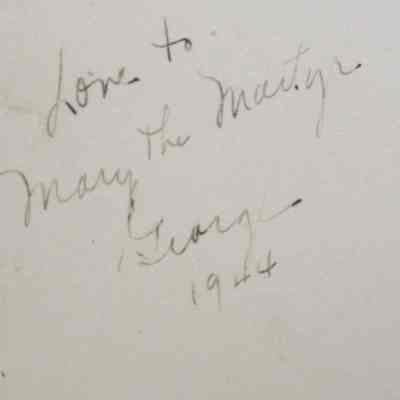 Love to
Mary The Martyr
George
1944